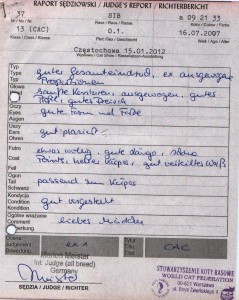 RAPORT SĘDZIOWSKI / JUDGE'S REPORT / RICHTERBERICHT
37 SIB a 09 21 33
13 (CAC) 0.1. 16.07.2007
Klasa / Class / Klasse Płeć / Sex / Geschlecht
Częstochowa 15.01.2012
Typ
Type
Typ
gutes Gesamteindruck, ex ausgewogen
Proportionen
Głowa
Head
Kopf
sanfte Konturen, ausgewogen, gutes
Profil, gutes Dreieck
Oczy
Eyes
Augen
gute Form und Farbe
Uszy
Ears
Ohren
gut plaziert
Futro
Coat
Fell
etwas wollig, gute Länge
gut verteiltes Weiß
Ogon
Tail
Schwanz
passend zum Körper
Kondycja
Condition
Kondition
gut vorgestellt
Ogólne wrażenie
Comment
Bemerkung
liebes Mädchen
Ocena
Judgement
Bewertung
ex 1
Tytuł
Title
Titel
CAC
Int Judge (all breed)
Germany
SĘDZIA / JUDGE / RICHTER
STOWARZYSZENIE KOTY RASOWE
WORLD CAT FEDERATION
Warszawa